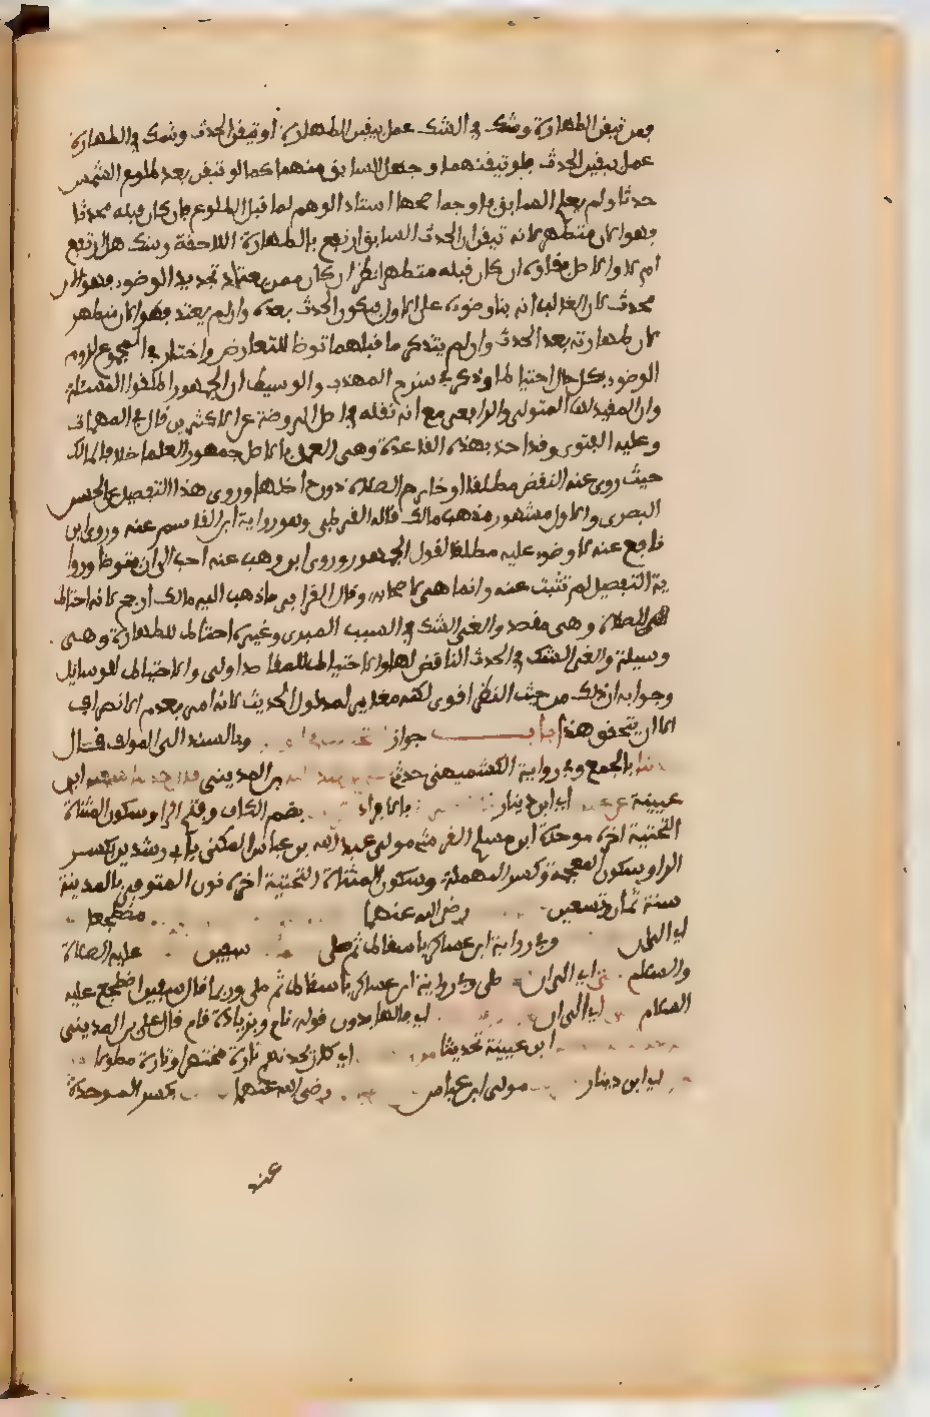 فمن تيقن الطهارة وشك في الشك عمل بيقين الطهارة او تيقن الحدث وشك في الطهارة
عمل بيقين الحدث فلو تيقنهما وجهل السابق منهما كما لو تيقن بعد طلوع الشمس
حدثا ولم يعلم السابق فاوجه اصحها اسناد الوهم لما قبل الطلوع فان كان قبله محدثا
فهو الان متطهر لانه تيقن ان الحدث السابق ارتفع بالطهارة اللاحقة وشك هل ارتفع
ام لا والاصل بقاوه وان كان قبله متطهرا نظر ان كان ممن يعتاد تجديد الوضوء فهو الان
محدث لان الغالب انه بنا وضوءه على الاول فيكون الحدث بعده وان لم يعتد فهو الان متطهر
لان طهارته بعد الحدث وان لم يتذكر ما قبلهما توضا للتعارض واختار في المجموع لزوم
الوضوء بكل حال احتياطا وذكر في شرح المهذب والوسيط ان الجمهور اطلقوا المسئلة
وان المقيد لها المتولي والرافعي مع انه نقله في اصل الروضة عن الاكثرين قال في المهمات
وعليه الفتوى وقد اخذ بهذه القاعدة وهي العمل بالاصل جمهور العلما خلافا لمالك
حيث روى عنه النقض مطلقا او خارج الصلاة دون داخلها وروى هذا التفصيل عن الحسن
البصري والاول مشهور مذهب مالك قاله القرطبي وهو رواية ابن القاسم عنه وروى ابن
نافع عنه لا وضوء عليه مطلقا لقول الجمهور وروى ابن وهب عنه احب الي ان يتوضا وروا
ية التفصيل لم تثبت عنه وانما هي لاصحابه وقال القرافي ما ذهب اليه مالك ارجح لانه احتاط
للصلاة وهي مقصد والغى الشك في السبب المبري وغيره احتاط للطهارة وهي
وسيلة والغى الشك في الحدث الناقض لها والاحتياط للمقاصد اولى من الاحتياط للوسايل
وجوابه ان ذلك من حيث النظر اقوى لكنه مغاير لمدلول الحديث لانه امر بعدم الانصراف
الا ان يتحقق هذا باب جواز وبالسند الى المولف قال
بالجمع وفي رواية الكشميهني حدثني بن المديني ابن
عيينة اي ابن دينار بالافراد بضم الكاف وفتح الرا وسكون المثناة
التحتية اخره موحدة ابن مسلم القرشي مولى عبد الله بن عباس المكنى بابي رشدين بكسر
الرا وسكون المعجمة وكسر المهملة وسكون المثناة التحتية اخره نون المتوفى بالمدينة
سنة ثمان وتسعين رضي الله عنهما مضطجعا
اي النبي وفي رواية ابن عساكر باسقاط ثم صلى سفين عليه الصلاة
والسلام اي النبي صلى وفي رواية ابن عساكر باسقاط ثم صلى وربما قال سفين اضطجع عليه
السلام اي النبي اي بالها بدون قوله نام وبزيادة قام قال علي بن المديني
ابن عيينة تحديثا اي كان يحدثهم تارة مختصرا وتارة مطولا
اي ابن دينار مولى ابن عباس رضي الله عنهما بكسر الموحدة
عند